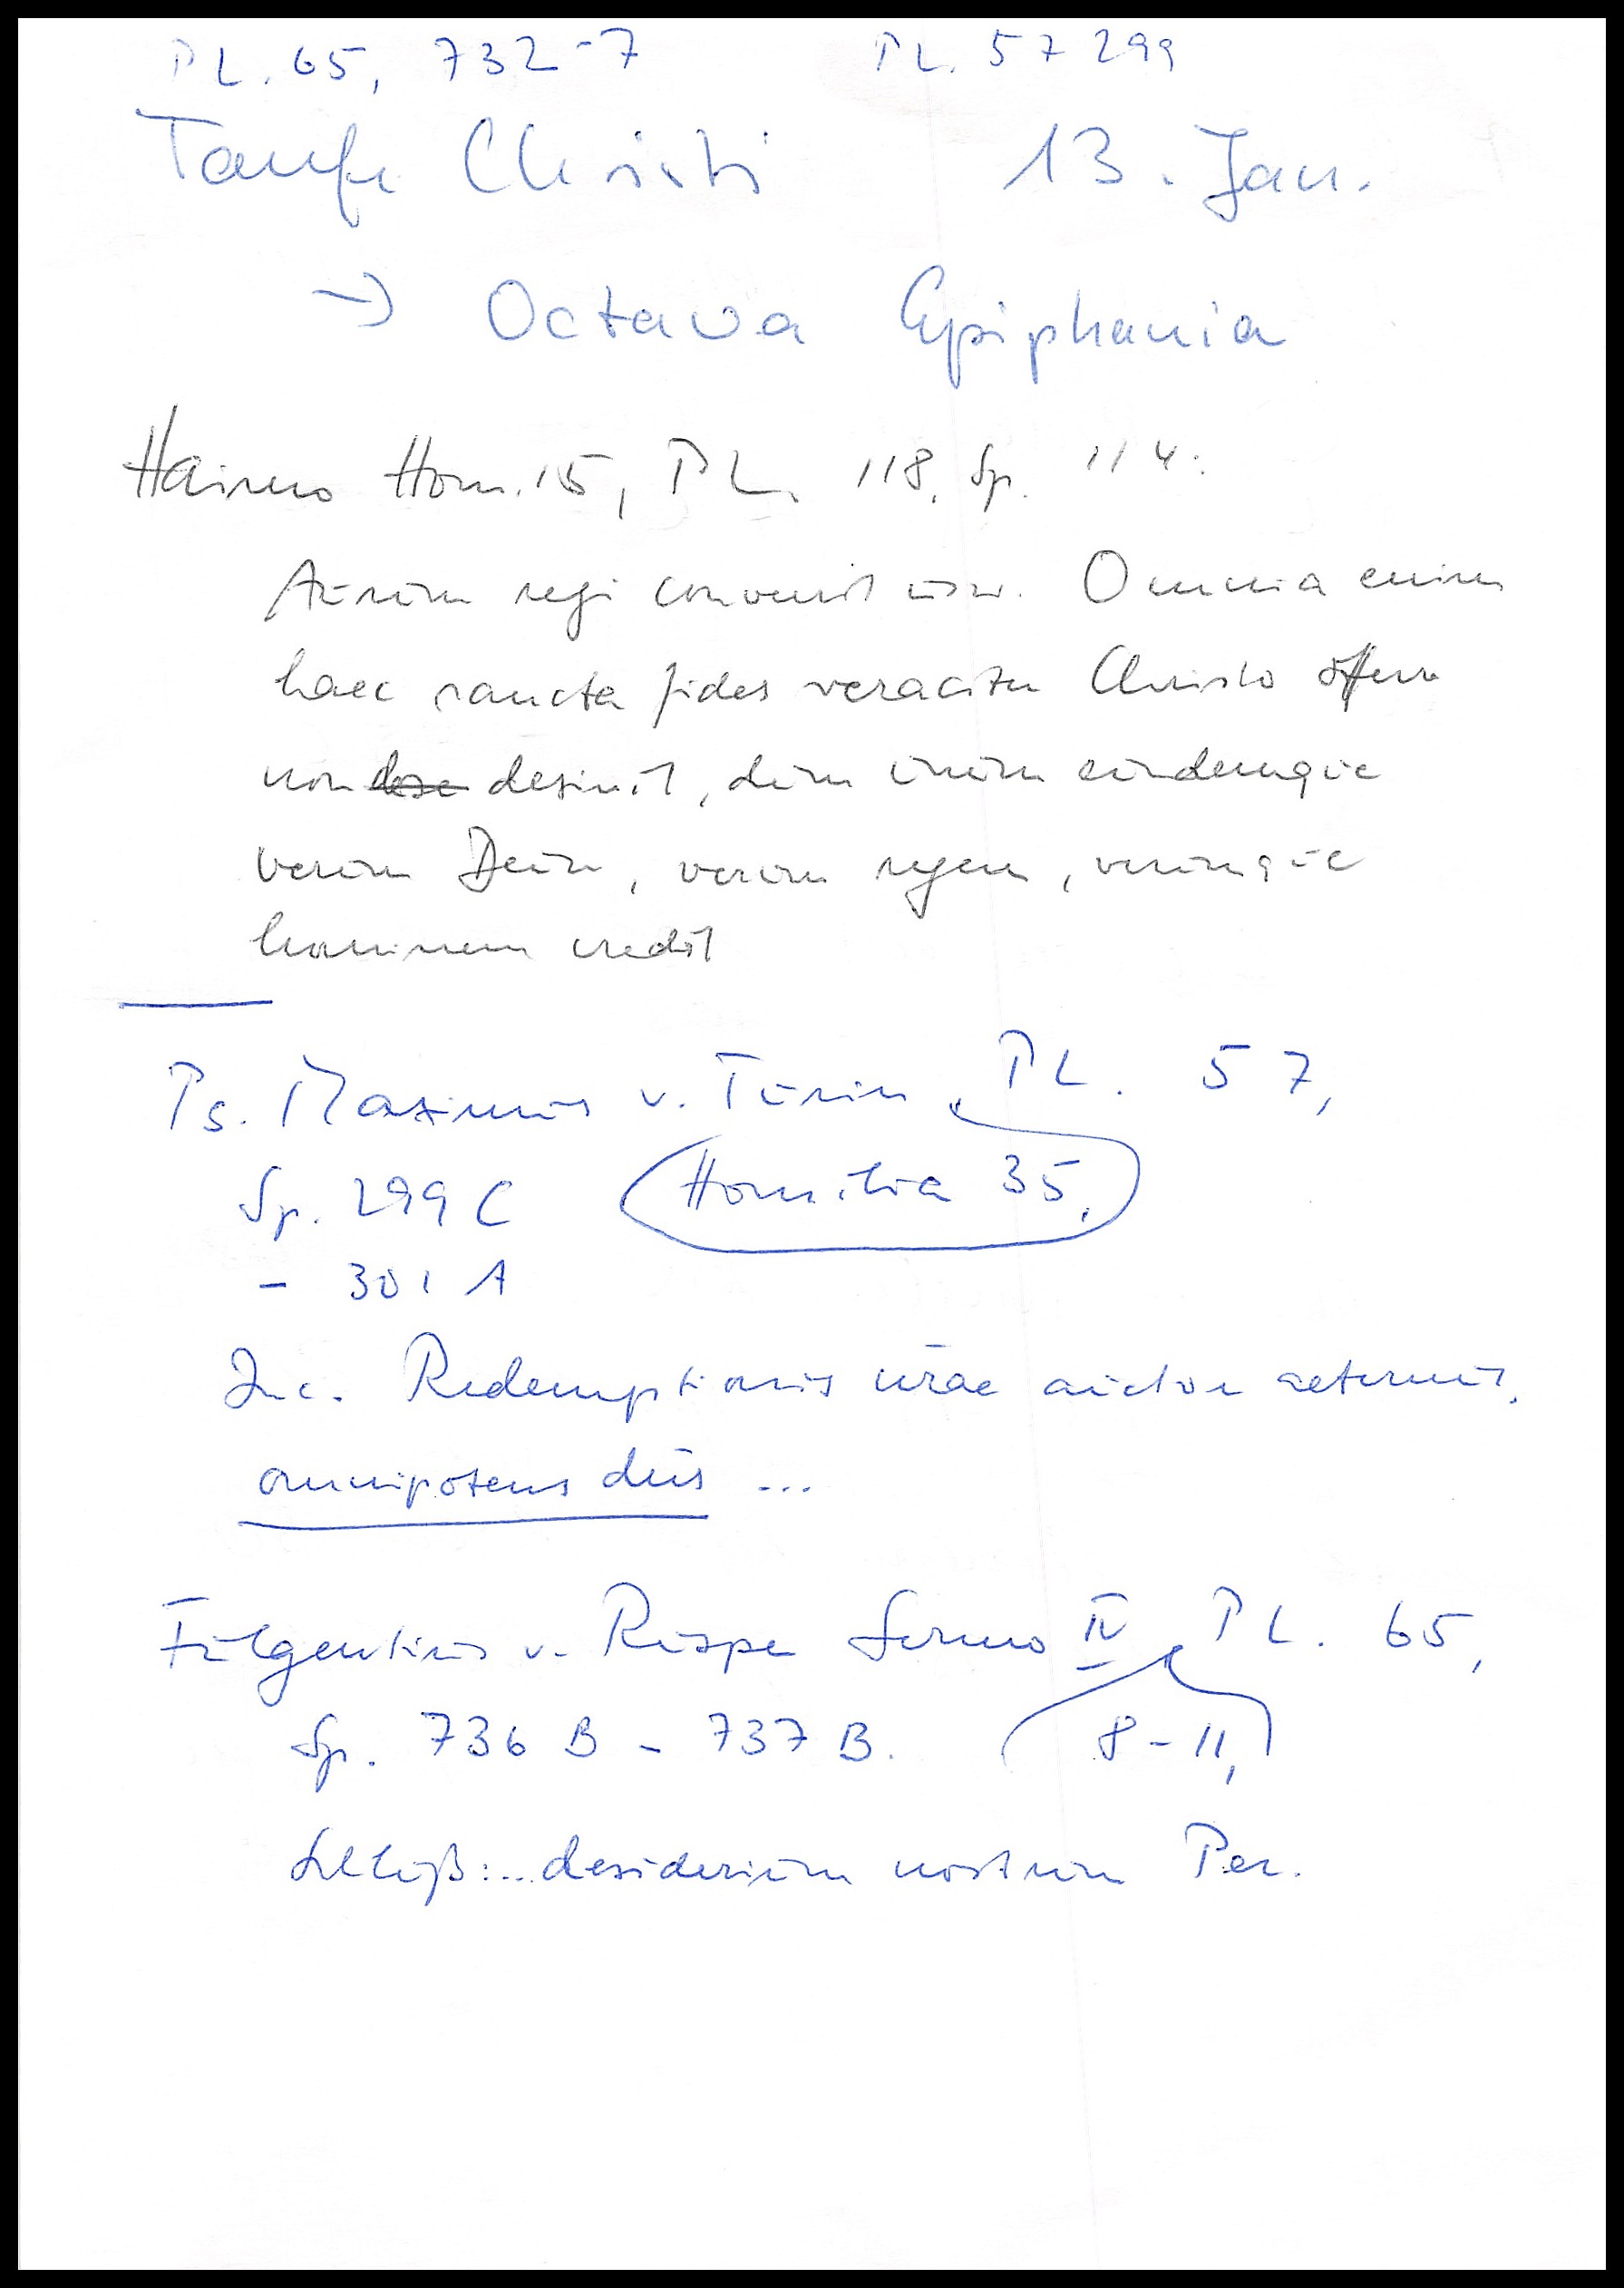 PL. 65, 732-7 PL. 57 299
Taufe Christi 13. Jan.
→ Octava Epiphania
Haimo Hom. 15, PL. 118, Sp. 114:
Aurum regi convenit usw. Omnia enim
haec sancta fides veraciter Christo offerre
non dese desinit, dum unum eundemque
verum Deum, verum regem, verumque
hominem credit
Ps. Maximus v. Turin, PL. 57,
Sp. 299 C Homilia 35,
- 301 A
Inc. Redemptionis nrae auctor aeternus,
omnipotens deus ...
Fulgentius v. Ruspe Sermo IV, PL. 65,
Sp. 736 B - 737 B. 8-11,
Schluß: ... desiderium nostrum Per.